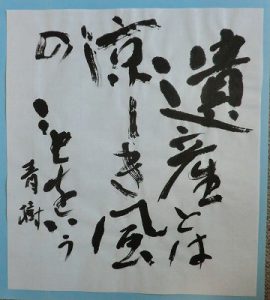 遺産とは
涼しき風
のことをいう
青樹